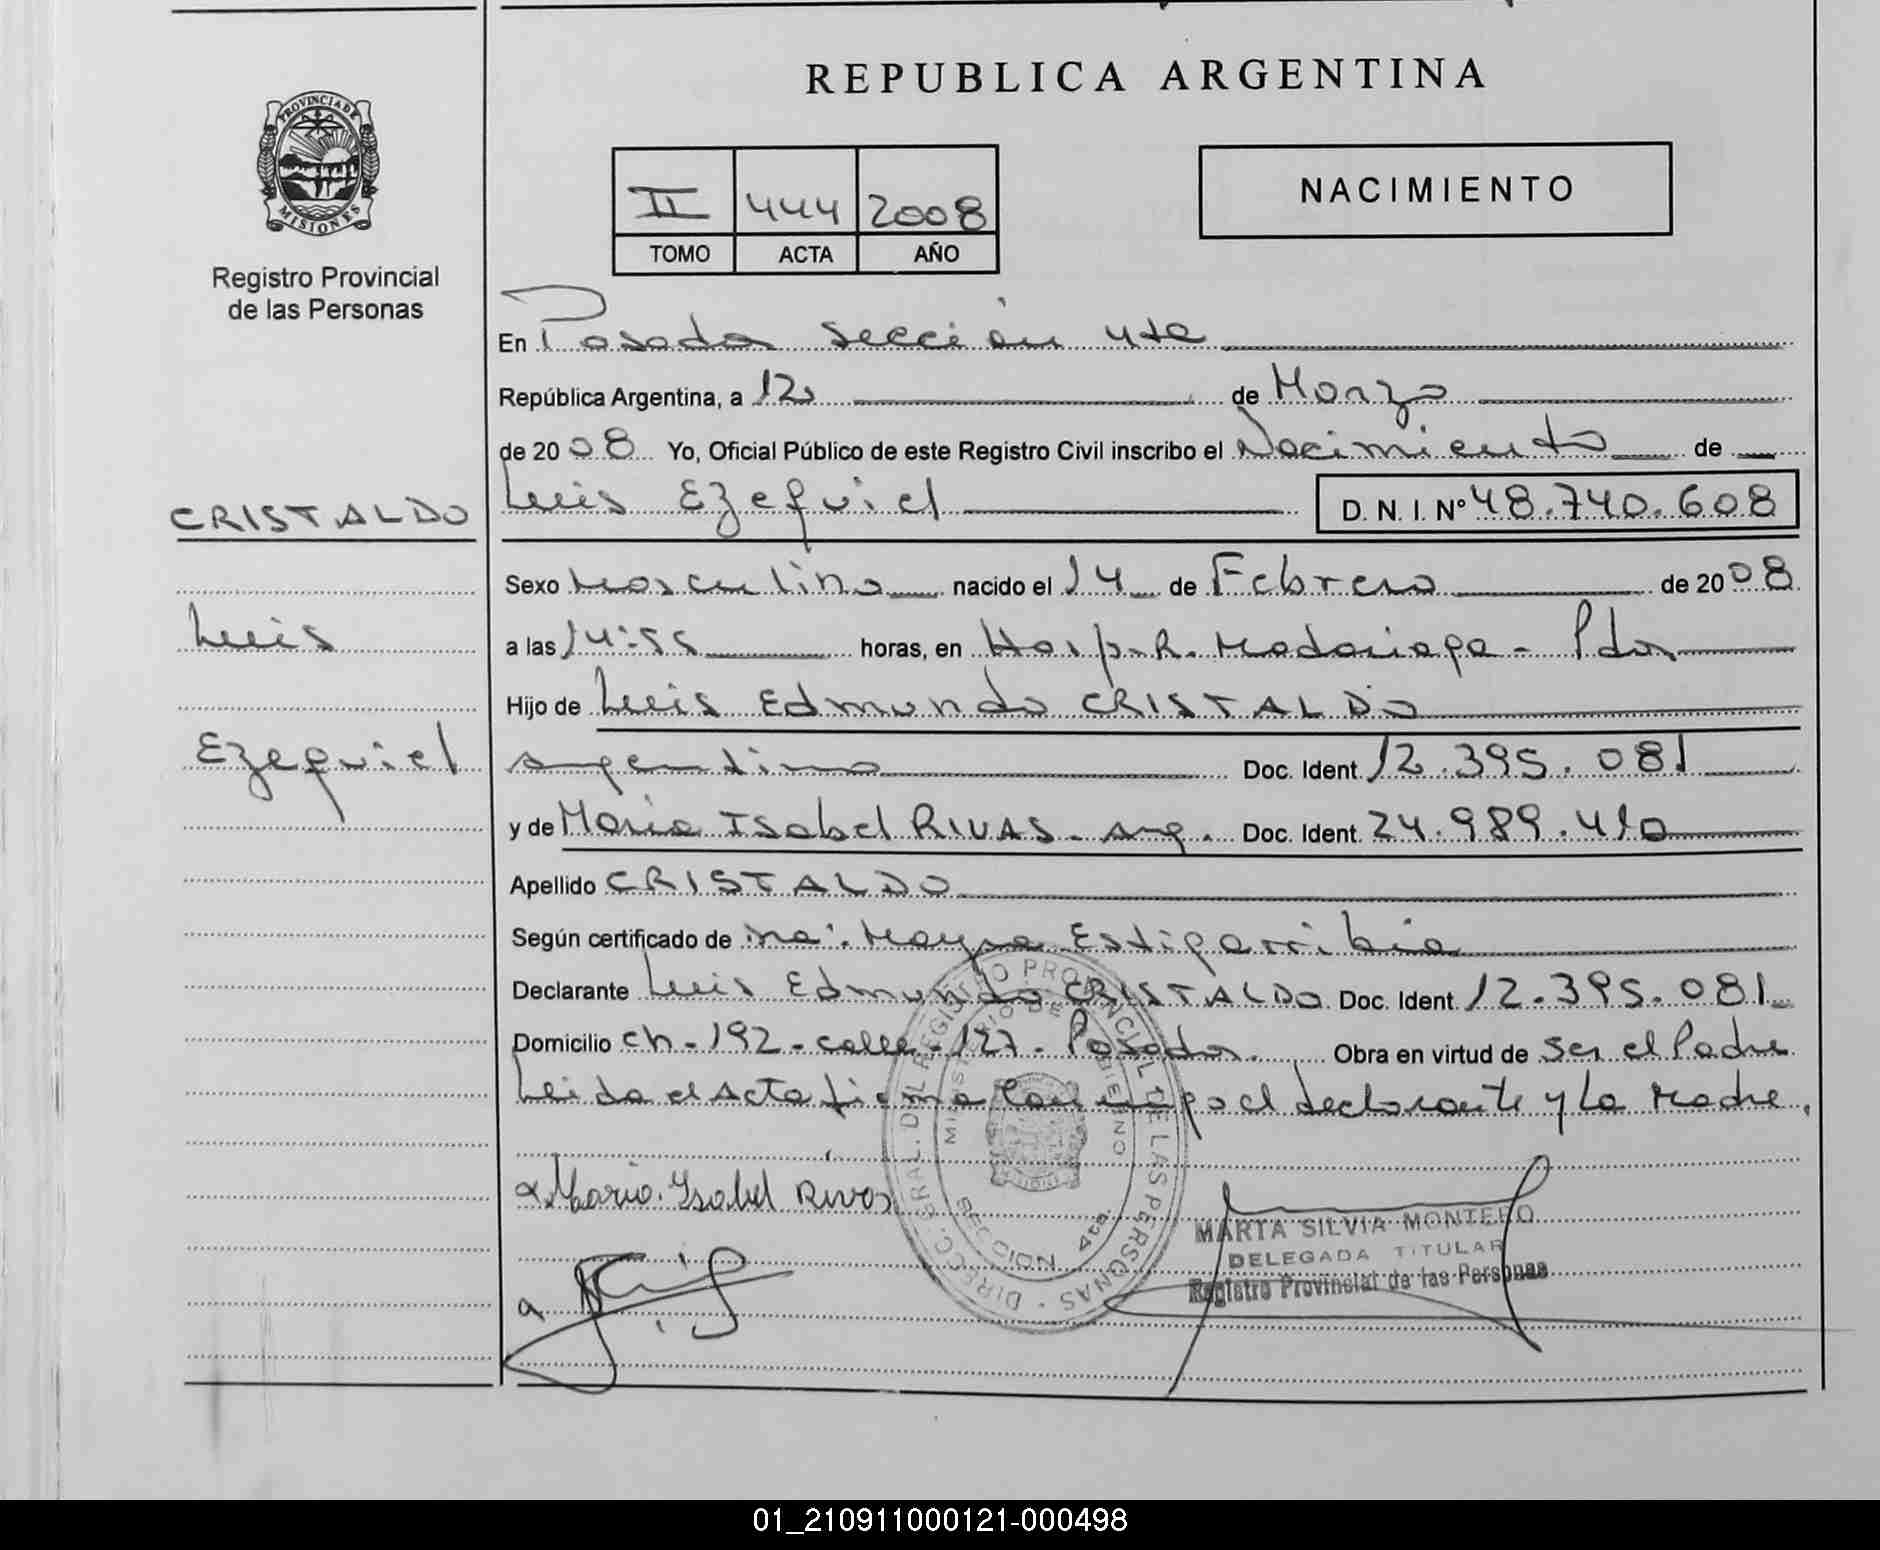 REPUBLICA ARGENTINA
PROVINCIA DE
MISIONES
Registro Provincial
de las Personas
NACIMIENTO
II 444 2008
TOMO ACTA AÑO
En Posadas Sección 4ta
República Argentina, a 12 de Marzo
de 2008 Yo, Oficial Público de este Registro Civil inscribo el Nacimiento de
CRISTALDO
Luis Ezequiel D. N. I. Nº 48.740.608
Sexo Masculino nacido el 14 de Febrero de 2008
Luis
a las 14:55 horas, en Hosp. R. Madariaga - Pdas
Hijo de Luis Edmundo CRISTALDO
Ezequiel
argentino Doc. Ident 12.395.081
y de María Isabel RIVAS - arg. Doc. Ident. 24.989.410
Apellido CRISTALDO
Según certificado de Mayra Estigarribia
Declarante Luis Edmundo CRISTALDO Doc. Ident 12.395.081
Domicilio ch - 192 - calle - 127 - Posadas. Obra en virtud de ser el Padre
Leida el Acta firma conmigo el declarante y la Madre.
DIRECC. GRAL. DEL REGISTRO PROVINCIAL DE LAS PERSONAS
MINISTERIO DE GOBIERNO
SECCION 4ta.
María Isabel Rivas
MARTA SILVIA MONTERO
DELEGADA TITULAR
Registro Provincial de las Personas
01_210911000121-000498